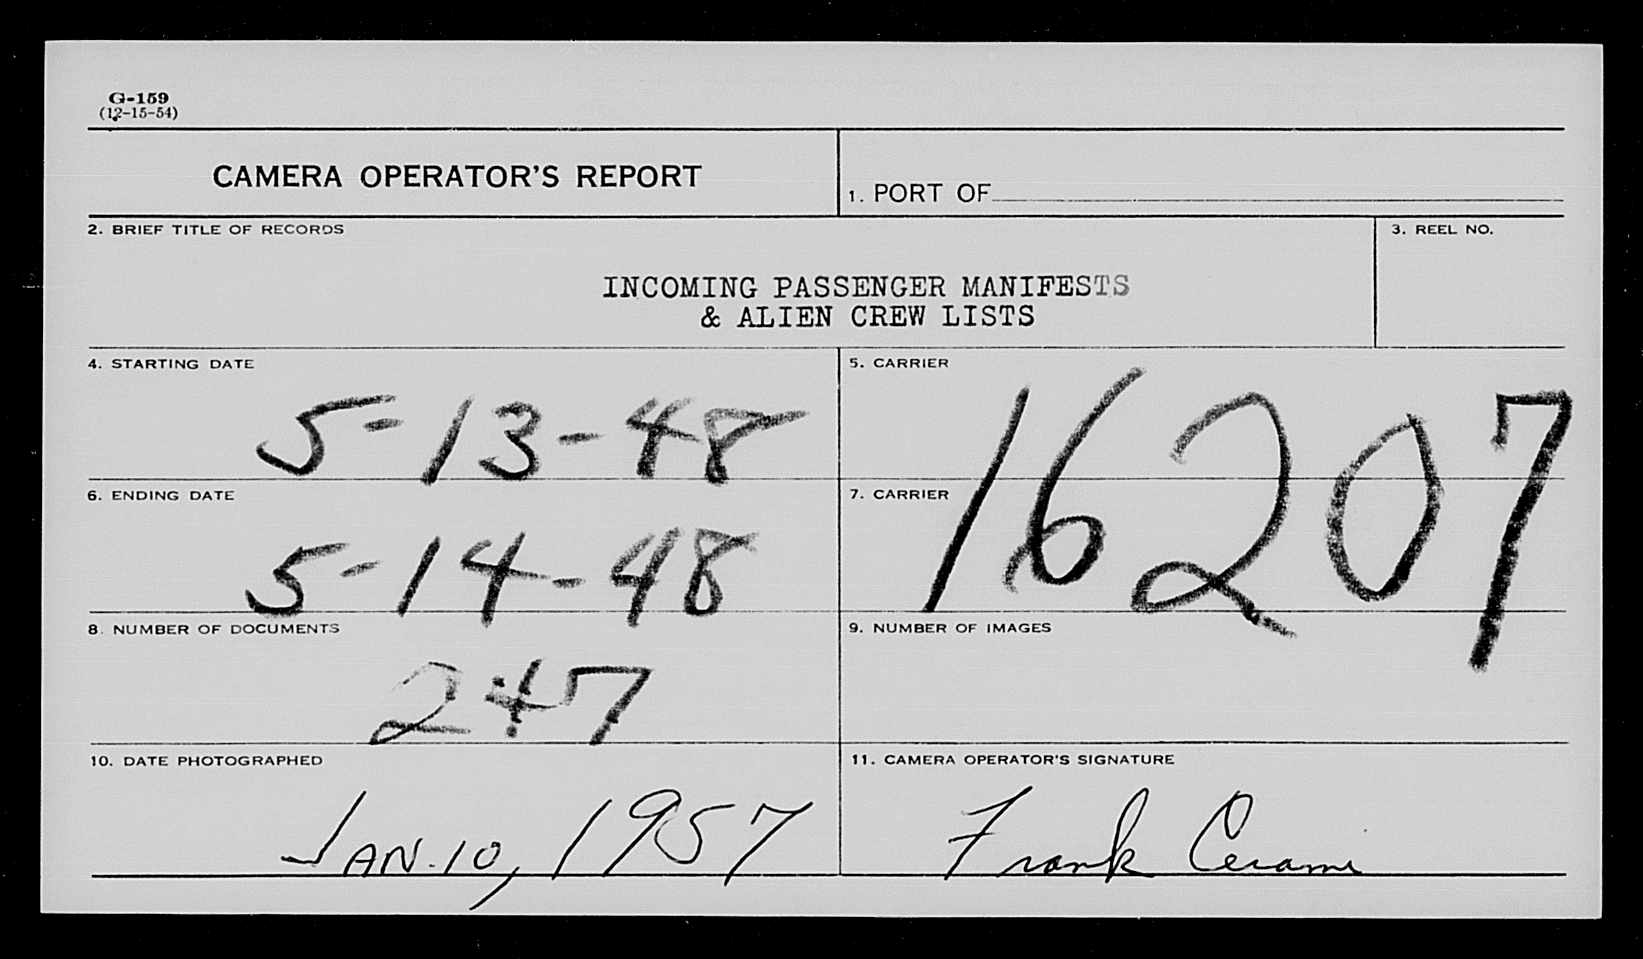 G-159
(12-15-54)
CAMERA OPERATOR'S REPORT
1. PORT OF
2. BRIEF TITLE OF RECORDS
3. REEL NO.
INCOMING PASSENGER MANIFESTS
& ALIEN CREW LISTS
4. STARTING DATE
5-13-48
5. CARRIER
16207
6. ENDING DATE
5-14-48
7. CARRIER
8. NUMBER OF DOCUMENTS
247
9. NUMBER OF IMAGES
10. DATE PHOTOGRAPHED
JAN. 10, 1957
11. CAMERA OPERATOR'S SIGNATURE
Frank Cerami